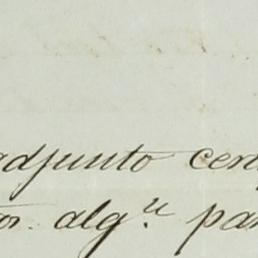 adjunto cer
or. alg.ⁿ par